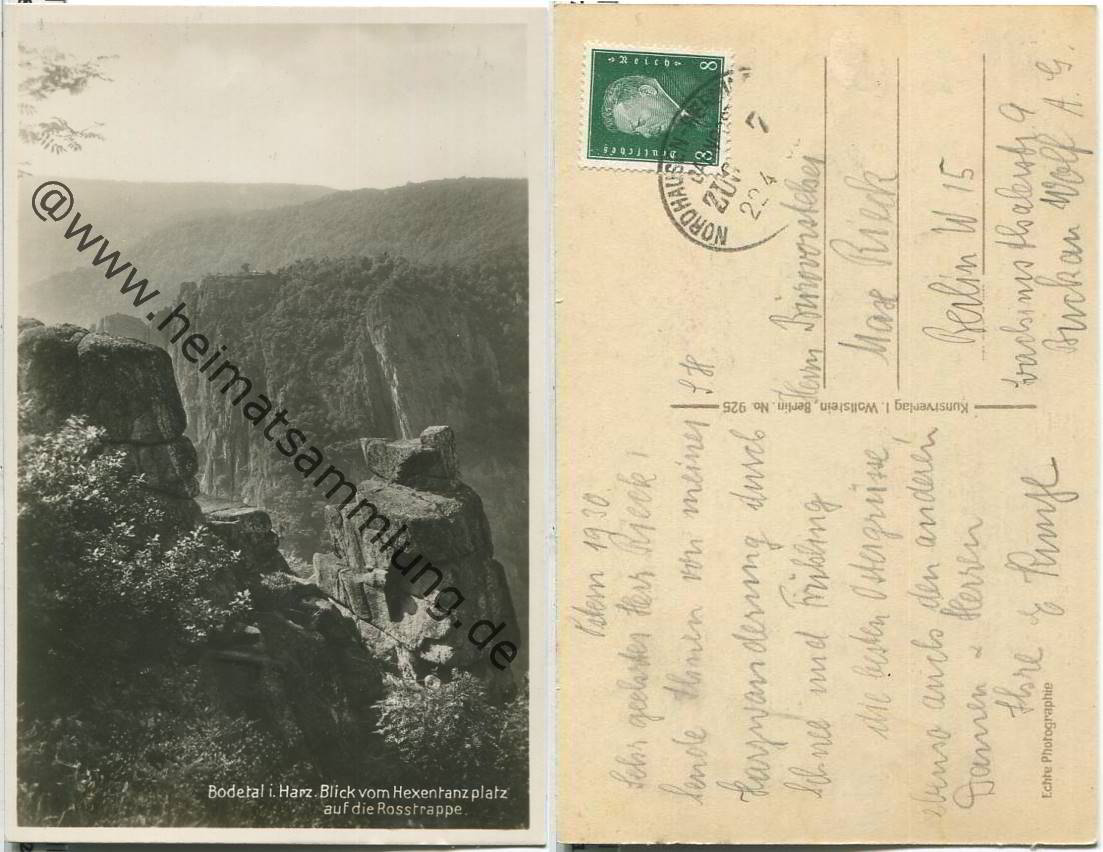 @www.heimatsammlung.de
Bodetal i. Harz. Blick vom Hexentanzplatz
auf die Rosstrappe.
8 8
Reich
Deutsches
NORDHAUSEN
ZUG
22 4
Ostern 1930.
Sehr geehrter Herr Rieck!
Sende Ihnen von meiner
Harzwanderung durch
Schnee und Frühling
die besten Ostergrüsse
ebenso auch den anderen
Damen & Herren
Ihre
Echte Photographie
Kunstverlag I. Wollstein, Berlin. No. 925
Herrn Bürovorsteher
Max Rieck
Berlin W 15
9
Buckau Wolf A. G.